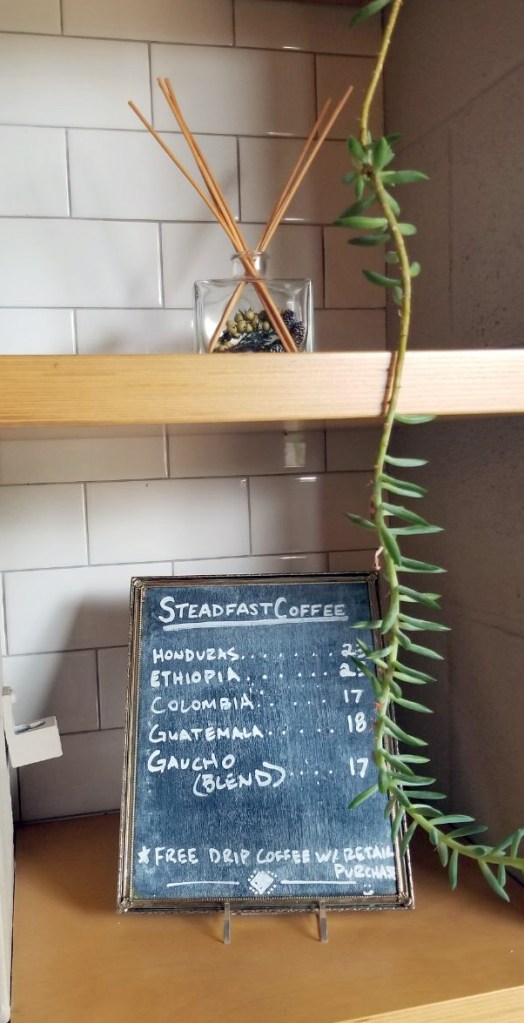 STEADFAST COFFEE
HONDURAS....... 
ETHIOPIA....... 
COLOMBIA..... 17
GUATEMALA..... 18
GAUCHO
(BLEND).... 17
★FREE DRIP COFFEE W/ RETAIL